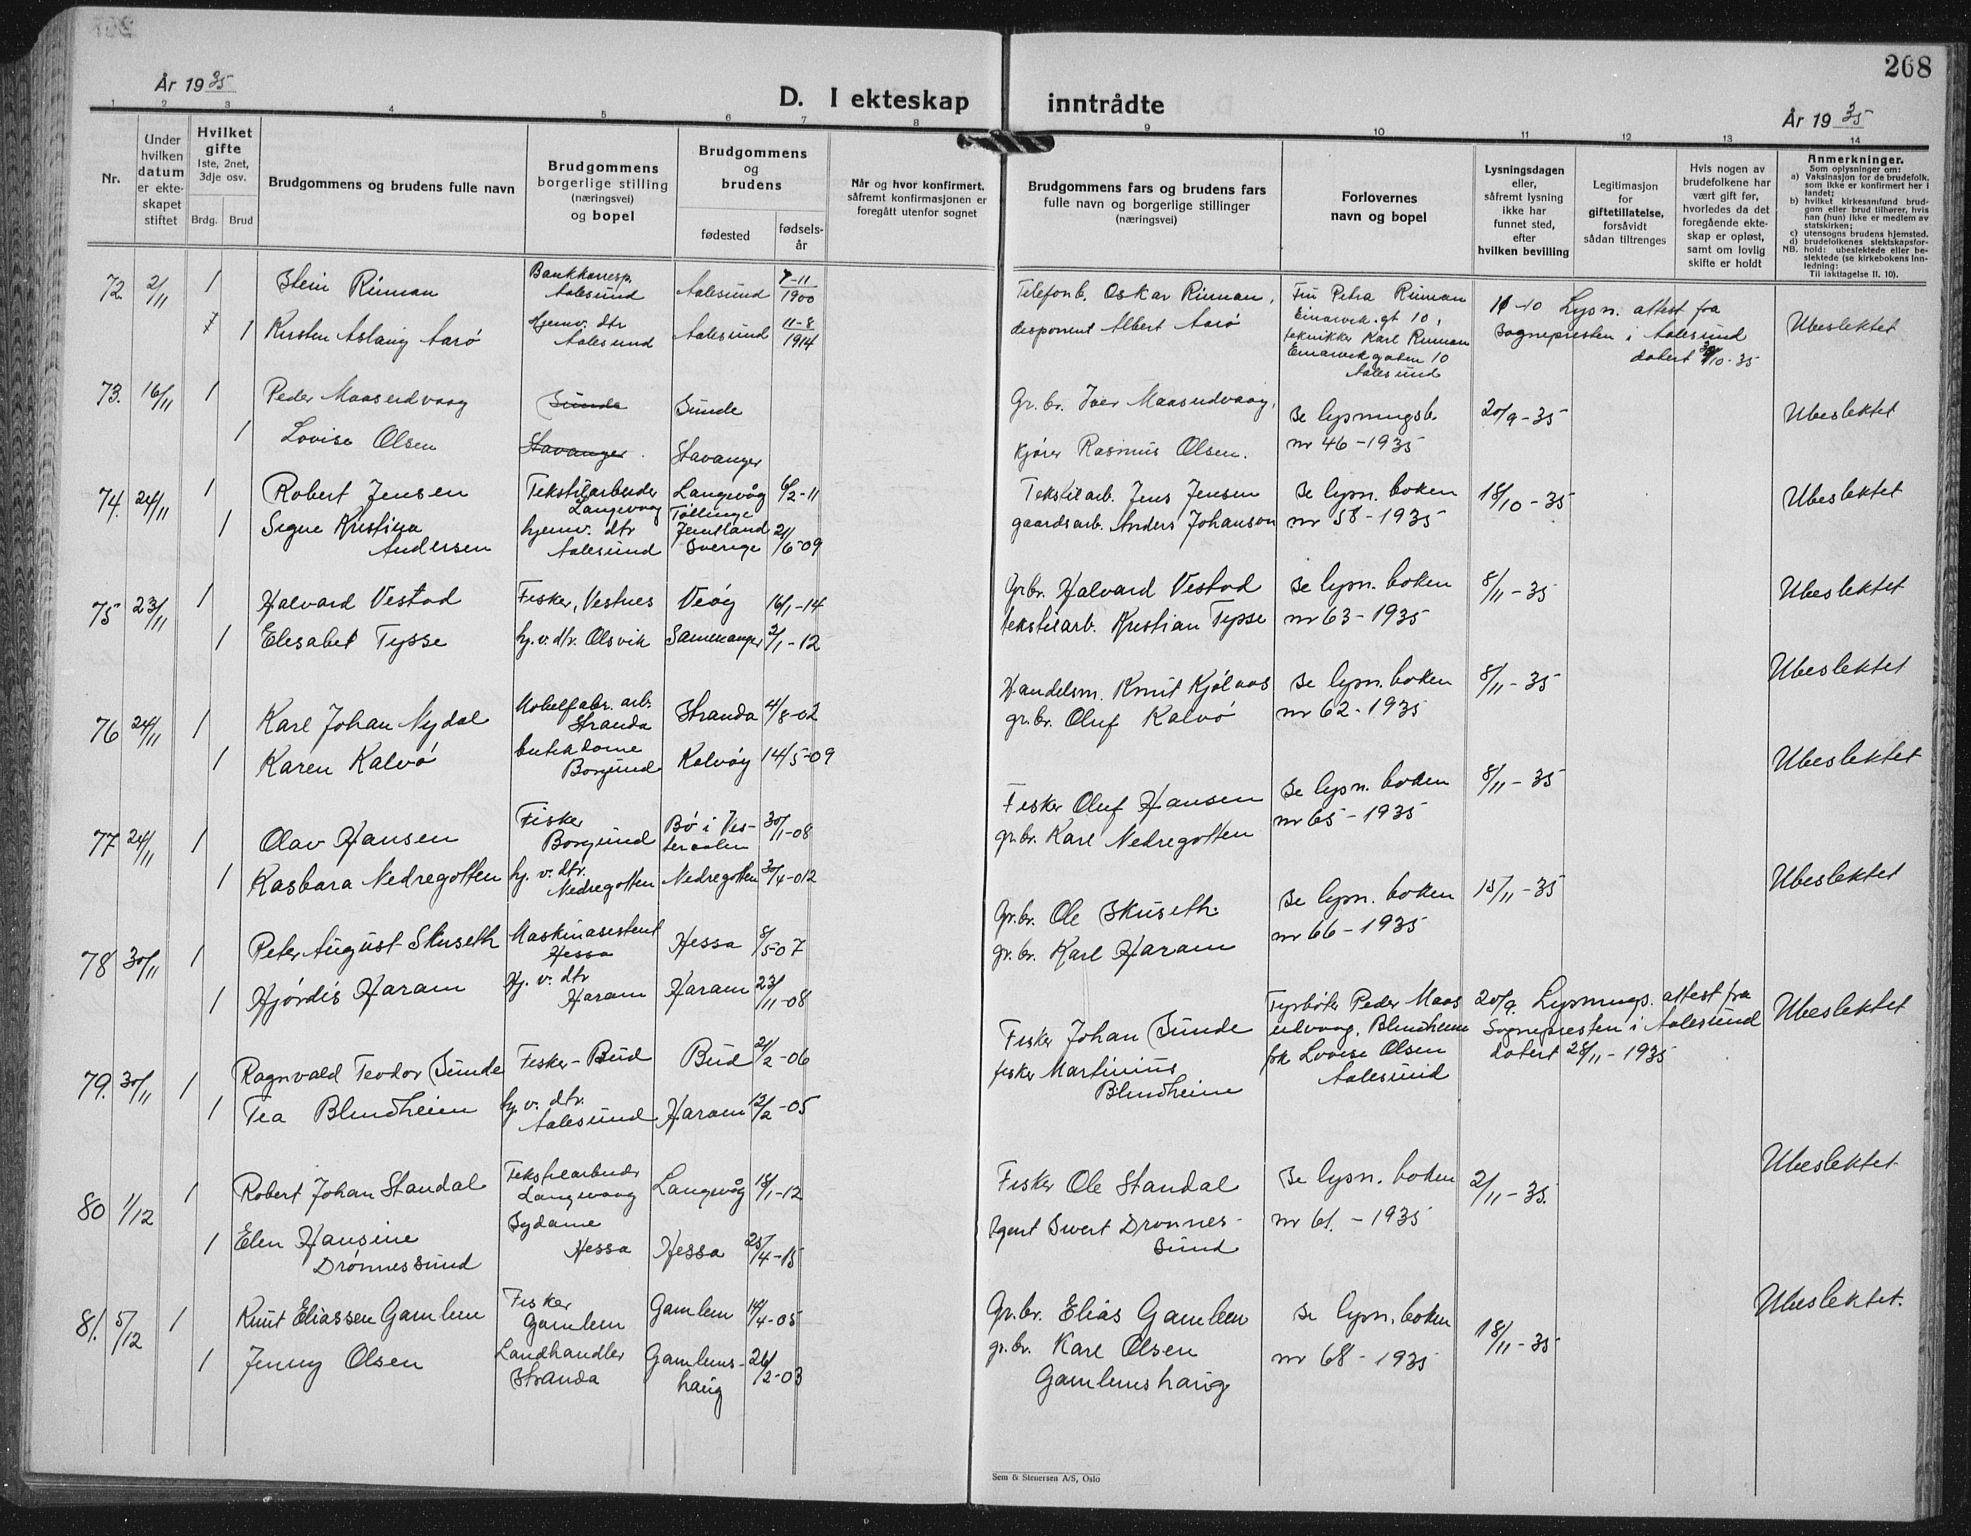 268
År 1935
D. I ekteskap inntrådte
År 1935
1 2 3 4 5 6 7 8 9 10 11 12 13 14
Nr.
Under hvilken datum er ekteskapet stiftet
Hvilket gifte
1ste, 2net, 3dje osv.
Brdg. Brud
Brudgommens og brudens fulle navn
Brudgommens borgerlige stilling (næringsvei) og bopel
Brudgommens og brudens
fødested
fødselsår
Når og hvor konfirmert, såfremt konfirmasjonen er foregått utenfor sognet
Brudgommens fars og brudens fars fulle navn og borgerlige stillinger (næringsvei)
Forlovernes navn og bopel
Lysningsdagen eller, såfremt lysning ikke har funnet sted, efter hvilken bevilling
Legitimasjon for giftetillatelse, forsåvidt sådan tiltrenges
Hvis nogen av brudefolkene har vært gift før, hvorledes da det foregående ekteskap er opløst, samt om lovlig skifte er holdt
Anmerkninger.
Som oplysninger om:
a) Vaksinasjon for de brudefolk, som ikke er konfirmert her i landet;
b) hvilket kirkesamfund brudgom eller brud tilhører, hvis han (hun) ikke er medlem av statskirken;
c) utensogns brudens hjemsted.
d) brudefolkenes slektskapsforhold: ubeslektede eller beslektede (se kirkebokens innledning:
NB. Til iakttagelse II. 10).
72. 2/11 1 Stein Rinman Bankkorresp. Aalesund Aalesund 7-11 1900 Telefonb. Oskar Rinman, Fru Petra Rinman 11-10 Lysn. attest fra
1 Kirsten Aslaug Aarø Hjemv. dtr Aalesund Aalesund 11-8 1914 disponent Albert Aarø Einarvik.gt 10, tekniker Karl Rinman Einarvikgaten 10 Aalesund Sognepresten i Aalesund datert 30/10-35 Ubeslektet
73. 16/11 1 Peder Maaseidvaag Sunde Sunde Gr. br. Iver Maaseidvaag, Se lysningsb. 20/9-35 Ubeslektet
1 Lovise Olsen Stavanger Stavanger Kjører Rasmus Olsen. nr 46-1935
74. 24/11 1 Robert Jensen Tekstilarbeider Langevaag Langevåg 6/2-11 Tekstilarb. Jens Jensen Se lysn. boken 18/10-35 Ubeslektet
1 Signe Kristina Andersen hjemv. dtr Aalesund Jemtland Sverige 21/6-09 gaardsarb. Anders Johanson nr 58-1935
75 23/11 1 Halvard Vestad Fisker, Vestnes Veøy 16/1-14 Gr.br. Halvard Vestad Se lysn. boken 8/11-35 Ubeslektet
1 Elisabet Tysse hj. v. dtr. Olsvik Samnanger 2/1-12 tekstilarb. Kristian Tysse nr 63-1935
76 24/11 1 Karl Johan Nydal Møbelfabr. arb. Stranda Stranda 4/8-02 Handelsm. Knut Kjølaas Se lysn. boken 8/11-35 Ubeslektet
1 Karen Kalvø butikdame Borgund Kalvøy 14/5-09 gr. br. Oluf Kalvø nr 62-1935
77 24/11 1 Olav Hansen Fisker Borgund Bø i Vesteraalen 30/1-08 Fisker Oluf Hansen Se lysn. boken 8/11-35 Ubeslektet
1 Kasbara Nedregotten hj. v. dtr. Nedregotten Nedregotten 30/4-012 gr. br. Karl Nedregotten nr 65-1935
78 30/11 1 Peter August Skuseth Maskinasistent Hessa Hessa 8/5-07 Gr.br. Ole Skuseth. Se lysn. boken 15/11-35 Ubeslektet
1 Hjørdis Haram Hj. v. dtr Haram Haram 23/11-08 gr. br. Karl Haram nr 66-1935
79. 30/11 1 Ragnvald Teodor Sunde Fisker-Bud Bud 21/2-06 Fisker Johan Sunde Fyrbøter Peder Maaseidvaag, Blindheim 20/9. Lysnings. attest fra Sognepresten i Aalesund datert 28/11-1935 Ubeslektet
1 Tea Blindheim hj. v. dtr. Aalesund Haram 12/2-05 fisker Martinius Blindheim frk Lovise Olsen Aalesund
80 1/12 1 Robert Johan Standal Tekstilarbeider Langevaag Langevåg 18/1-12 Fisker Ole Standal Se lysn. boken 2/11-35. Ubeslektet
1 Elen Hansine Drønnessund Sydame Hessa Hessa 25/4-15 Agent Sivert Drønnessund nr 61.-1935
81. 5/12 1 Knut Eliassen Gamlem Fisker Gamlem Gamlem 14/4-05 Gr.br. Elias Gamlem Se lysn. boken 18/11-35 Ubeslektet.
1 Jenny Olsen Landhandler Stranda Gamlemshaug 26/2-03 gr. br. Karl Olsen Gamlemshaug nr 68-1935
Sem & Stenersen A/S, Oslo